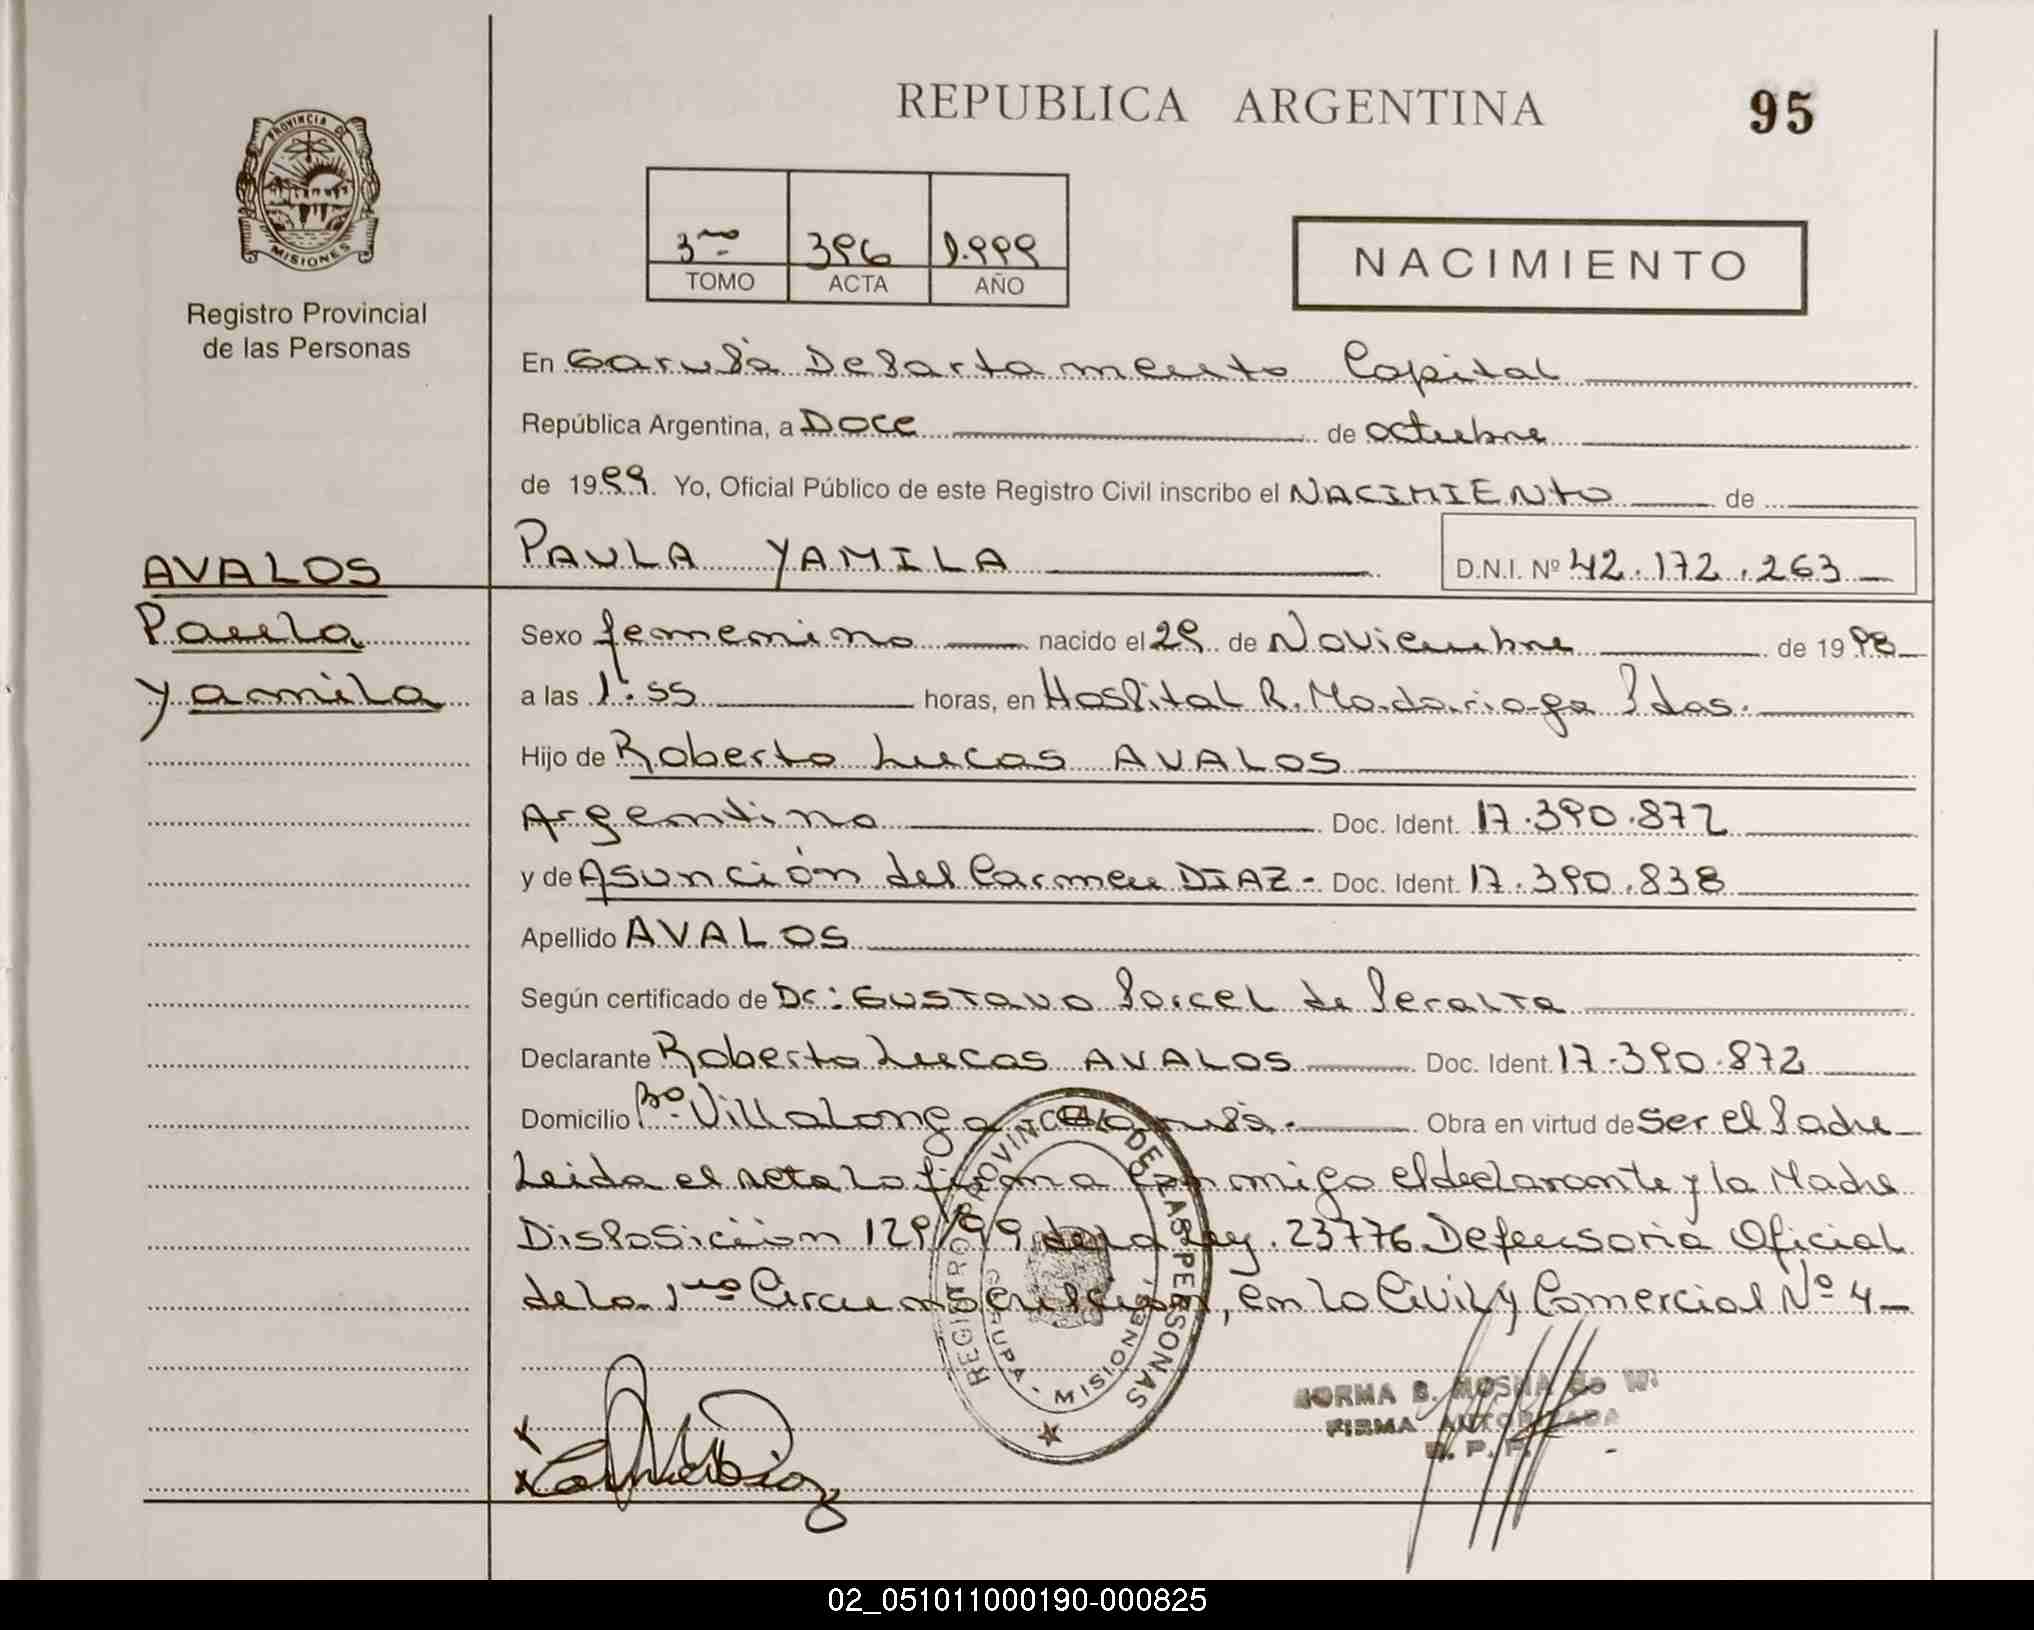 REPUBLICA ARGENTINA
95
PROVINCIA DE
MISIONES
Registro Provincial
de las Personas
3ro 396 1.999
TOMO ACTA AÑO
NACIMIENTO
En Garupá Departamento Capital
República Argentina, a Doce de octubre
de 1999. Yo, Oficial Público de este Registro Civil inscribo el NACIMIENto de
PAULA YAMILA
D.N.I. Nº 42.172.263
AVALOS
Paula
Yamila
Sexo femenino nacido el 29 de Noviembre de 1998
a las 1:55 horas, en Hospital R. Madariaga Pdas.
Hijo de Roberto Lucas AVALOS
Argentino Doc. Ident. 17.390.872
y de Asunción del Carmen DIAZ - Doc. Ident. 17.390.838
Apellido AVALOS
Según certificado de Dr: Gustavo Porcel de Peralta
Declarante Roberto Lucas AVALOS Doc. Ident. 17.390.872
Domicilio Bº Villalonga Garupá. Obra en virtud de Ser el Padre
Leida el acta la firma conmigo el declarante y la Madre
Disposición 129/99 de la Ley. 23776 Defensoria Oficial
de la 1ra Circunscripción, en lo Civil y Comercial Nº 4
REGISTRO PROVINCIAL DE LAS PERSONAS
GARUPA - MISIONES
NORMA B.
FIRMA AUTORIZADA
R. P. P.
02_051011000190-000825